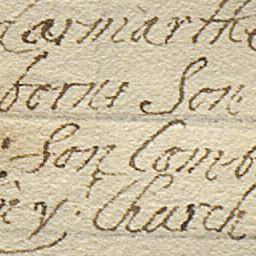 armarthe
borne Son
Son Comb
ey: Church